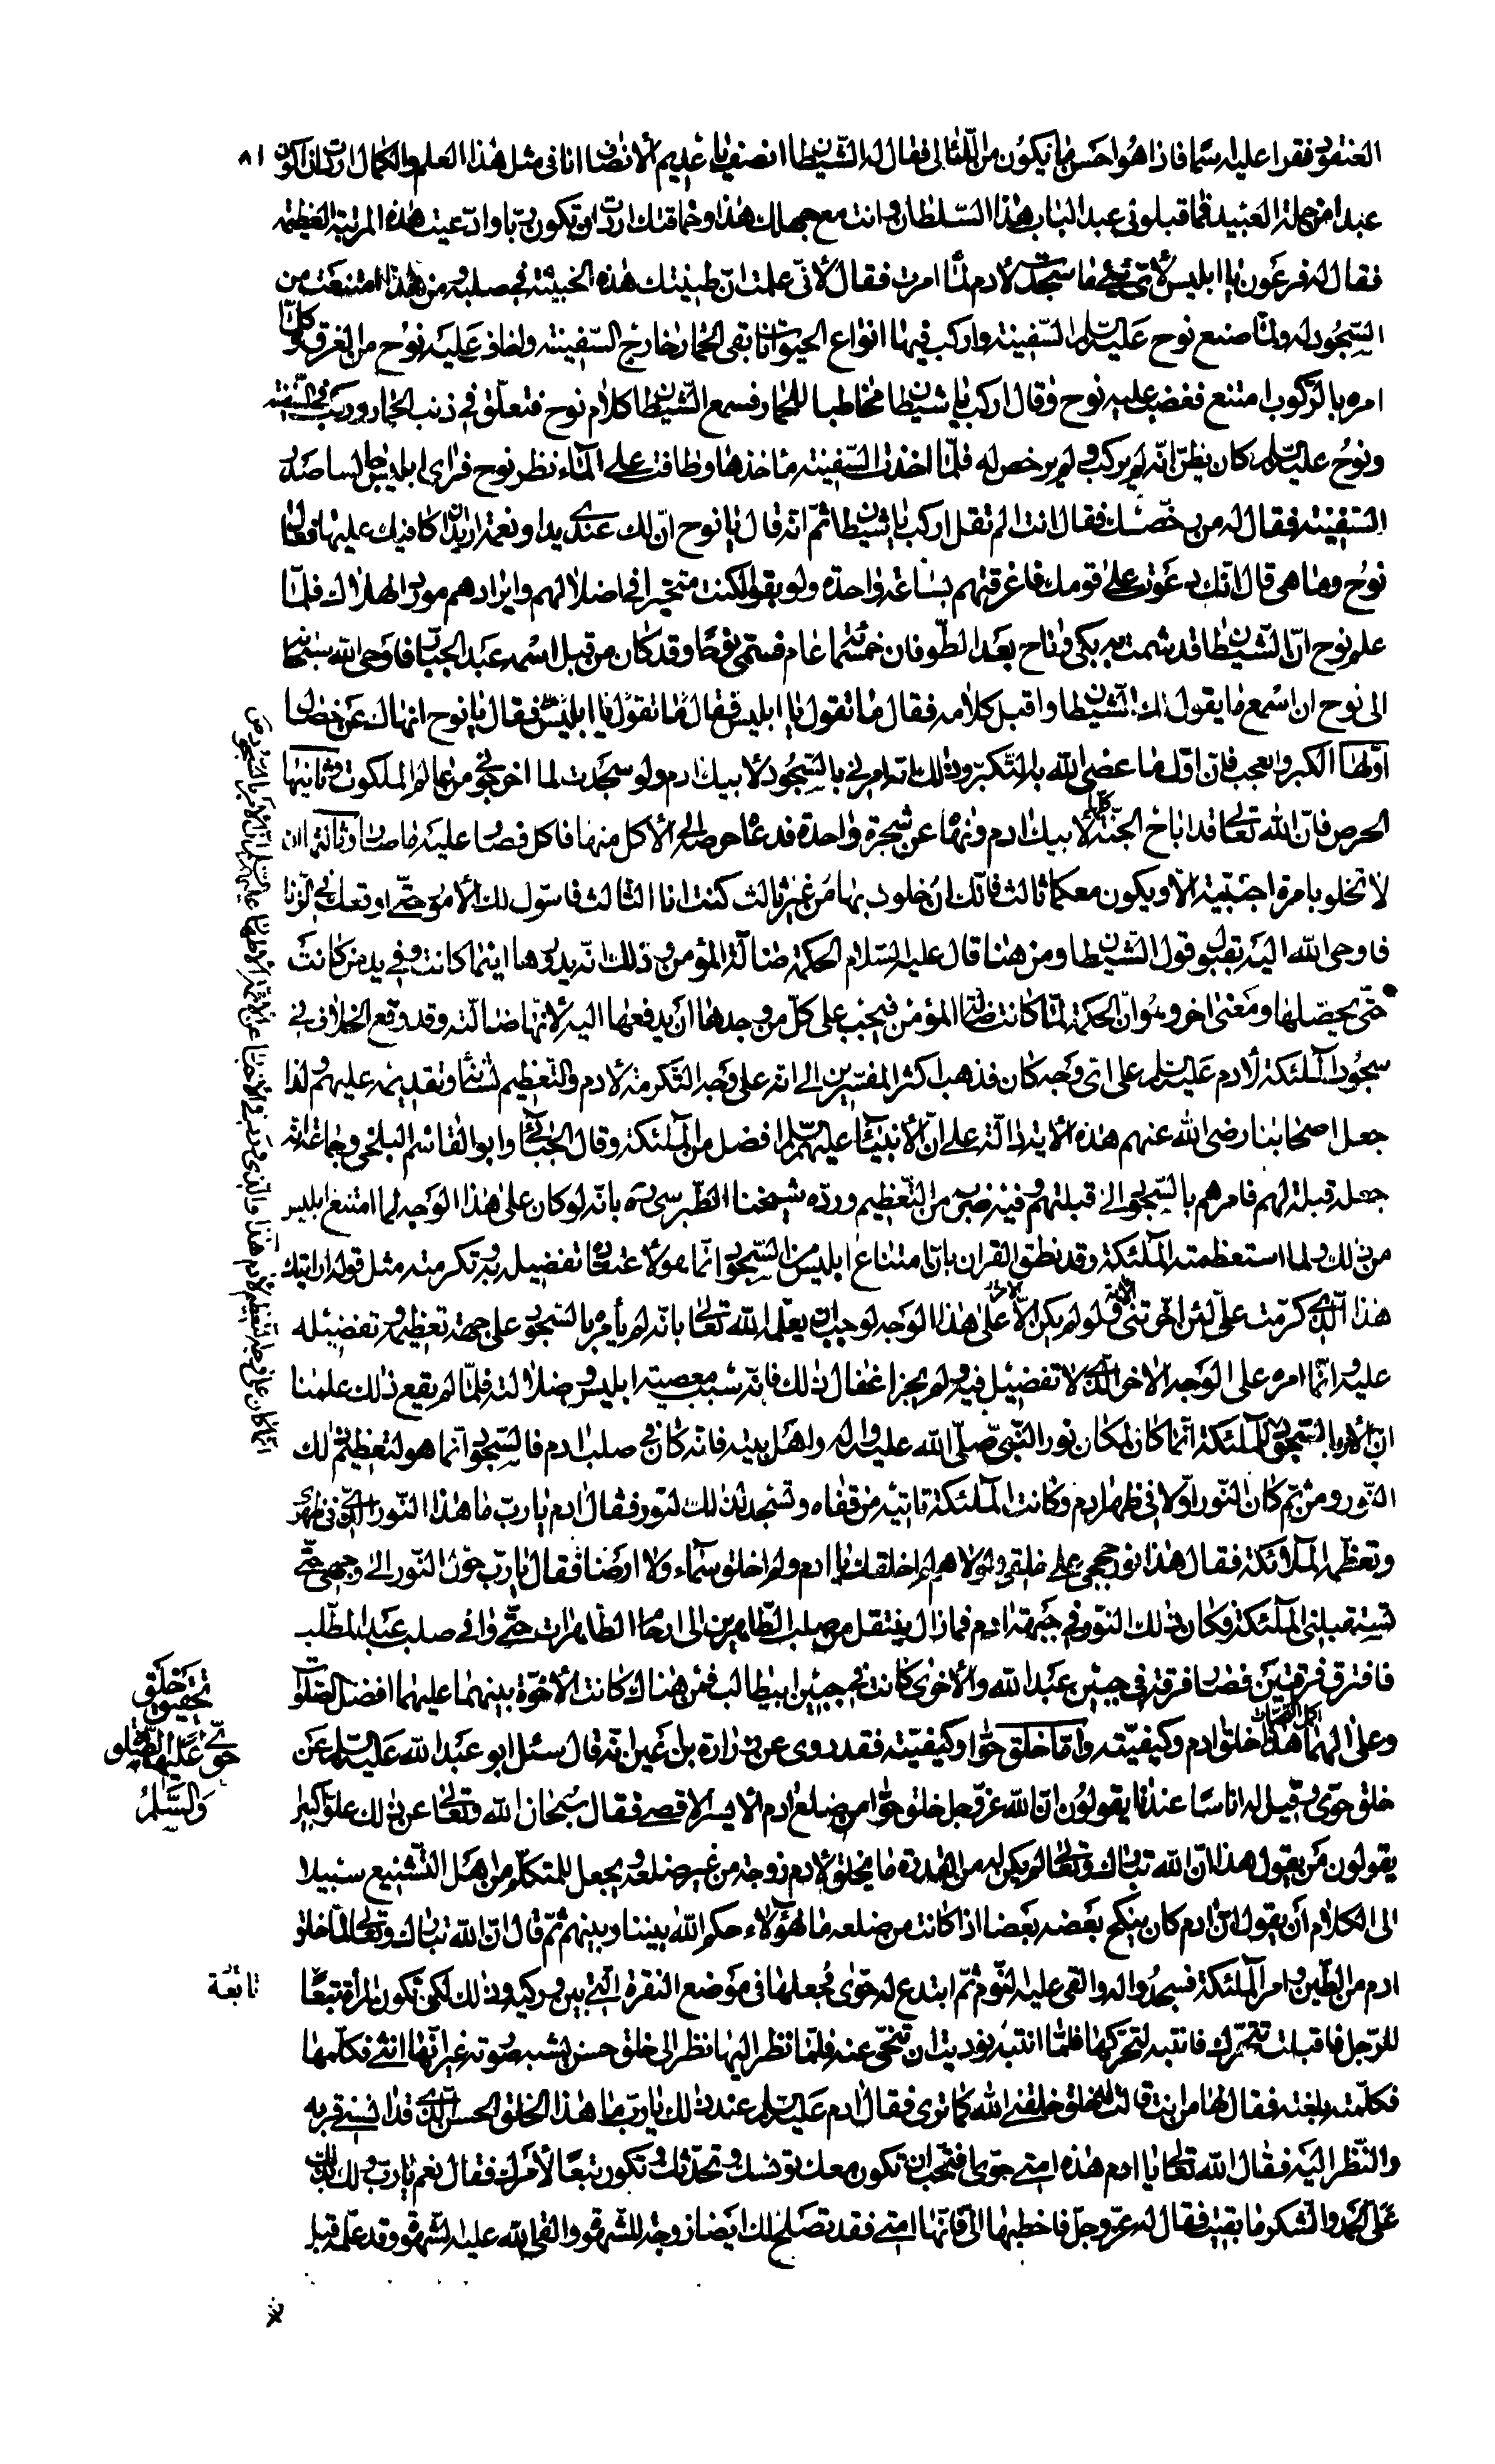 العنقود فقرا عليه سما فاذا هو احسن ما يكون من اللئالى فقال له الشيطان انصفني يا عديم الانصاف انا في مثل هذا العلم والكمال اردت ان اكون
٨١
عبدا من جملة العبيد فما قبلوني عبدا لباب هذا السلطان وانت مع جهلك هذا وحماقتك اردت ان تكون ربا وادعيت هذه المرتبة العظيمة
فقال له فرعون يا ابليس لأي شيء ما سجدت لادم لما امرت فقال لأني علمت ان طينتك هذه الخبيثة في صلبه ومن هذا امتنعت من
السجود له ولما صنع نوح عليه السلم السفينة واركب فيها انواع الحيوانات بقى الحمار خارج السفينة ولخاف عليه نوح من الغرق وكلما
امره بالركوب امتنع فغضب عليه نوح وقال اركب يا شيطان مخاطبا للحمار فسمع الشيطان كلام نوح فتعلق في ذنب الحمار وركب في السفينة
ونوح عليه السلم كان يظن انه لم يركب ولم يرخص له فلما اخذت السفينة مأخذها وطافت على الماء نظر نوح فراى ابليس جالسا صدر
السفينة فقال له من رخصك فقال انت الم تقل اركب يا شيطان ثم انه قال يا نوح ان لك عندي يدا ونعمة اريد ان اكافيك عليها فقال
نوح وما هي قال انك دعوت على قومك فاغرقتهم بساعة واحدة ولو بقوا لكنت متحيرا في اضلالهم وايرادهم موارد الهلاك فلما
علم نوح ان الشيطان قد شمت به بكى وناح بعد الطوفان خمسمائة عام فسمى نوحا وقد كان من قبل اسمه عبد الجبار فاوحى الله سبحانه
الى نوح ان اسمع ما يقول لك الشيطان واقبل كلامه فقال ما تقول يا ابليس فقال يا نوح انهاك عن خصال
اولها الكبر والعجب فان اول ما عصى الله به التكبر وذلك انه امرني بالسجود لابيك ادم ولو سجدت لما اخرجوني من عالم الملكوت وثانيها
الحرص فان الله تعالى قد اباح الجنة كلها لابيك ادم ونهاه عن شجرة واحدة فدعاه حرصه الى الأكل منها فاكل فصار عليه ما صار وثالثها ان
لا تخلو بامرة اجنبية الا ويكون معكما ثالث فانك ان خلوت بها من غير ثالث كنت انا الثالث فاسول لك الأمور حتى اوقعك في الزنا
فاوحى الله اليه بقبول قول الشيطان ومن هنا قال عليه السلام الحكمة ضالة المؤمن وذلك انه يريدها اينما كانت وفي يد من كانت
حتى يحصلها ومعنى اخر وهو ان الحكمة لما كانت ضالة المؤمن فيجب على كل من وجدها ان يدفعها اليه لانها ضالته وقد وقع الخلاف في
سجود الملئكة لادم عليه السلم على اي وجه كان فذهب اكثر المفسرين الى انه على وجه التكرمة لادم والتعظيم لشأنه وتقديمه عليهم ولذا
جعل اصحابنا رضى الله عنهم هذه الاية دالة على ان الأنبياء عليهم السلم افضل من الملئكة وقال الجبائي وابو القاسم البلخي وجماعة انه
جعله قبلة لهم فامرهم بالسجود الى قبلتهم وفيه ضرب من التعظيم ورده شيخنا الطبرسي ره بانه لو كان على هذا الوجه لما امتنع ابليس
من ذلك ولما استعظمته الملئكة وقد نطق القران بان امتناع ابليس من السجود انما هو لاعتقاد تفضيله به وتكرمته مثل قوله ارايتك
هذا الذي كرمت علي لئن اخرتني الاية ولو لم يكن الامر على هذا الوجه لوجب ان يعلمه الله تعالى بانه لم يأمره بالسجود على جهة تعظيمه وتفضيله
عليه وانما امره على الوجه الاخر الذي لا تفضيل فيه ولم يجز اغفال ذلك فانه سبب معصية ابليس وضلالته فلما لم يقع ذلك علمنا
ان الأمر بالسجود للملئكة انما كان لمكان نور النبي صلى الله عليه واله واهل بيته فانه كان في صلب ادم فالسجود انما هو لتعظيم ذلك
النور ومن ثم كان النور اولا في ظهر ادم وكانت الملئكة تاتيه من قفاه وتسجد لذلك النور فقال ادم يا رب ما هذا النور الذي في ظهري
وتعظمه الملائكة فقال هذا نور حججي على خلقي ولولاهم لم اخلقك يا ادم ولم اخلق سماء ولا ارضا فقال يا رب حول النور الى وجهي حتى
تستقبلني الملئكة فكان ذلك النور في جبهة ادم فما زال ينتقل من صلب الطاهرين الى ارحام الطاهرات حتى وافى صلب عبد المطلب
فافترق فرقتين فصار فرقة في جبين عبد الله والأخرى كانت في جبين ابيطالب فمن هناك كانت الأخوة بينهما عليهما افضل الصلوات
وعلى الهما اكمل التحيات هذا خلق ادم وكيفيته واما خلق حوا وكيفيته فقد روى عن زرارة بن اعين انه قال سئل ابو عبد الله عليه السلم عن
خلق حوى وقيل له اناسا عندنا يقولون ان الله عز وجل خلق حوا من ضلع ادم الأيسر الاقصى فقال سبحان الله وتعالى عن ذلك علوا كبيرا
يقولون من يقول هذا ان الله تبارك وتعالى لم يكن له من القدرة ما يخلق لادم زوجة من غير ضلعه ويجعل للمتكلم من اهل التشنيع سبيلا
الى الكلام أن يقول ان ادم كان ينكح بعضه بعضا اذا كانت من ضلعه ما لهؤلاء حكم الله بيننا وبينهم ثم قال ان الله تبارك وتعالى لما خلق
ادم من الطين وامر الملئكة فسجدوا له والقى عليه النوم ثم ابتدع له حوى فجعلها في موضع النقرة التي بين وركيه وذلك لكي تكون المرأة تبعا
للرجل فاقبلت تتحرك فانتبه لتحركها فلما انتبه نوديت ان تنحى عنه فلما نظر اليها نظر الى خلق حسن يشبه صورته غير انها انثى فكلمها
فكلمته بلغته فقال لها من انت قالت خلق خلقني الله كما ترى فقال ادم عليه السلم عند ذلك يا رب ما هذا الخلق الحسن الذي قد انسني قربه
والنظر اليه فقال الله تعالى يا ادم هذه امتي حوى افتحب ان تكون معك تونسك وتحدثك وتكون تبعا لأمرك فقال نعم يا رب ولك بذلك
على الحمد والشكر ما بقيت فقال له عز وجل فاخطبها الي فانها امتي فقد تصلح لك ايضا زوجة للشهوة والقى الله عليه الشهوة وقد علمه قبل
تحقيق خلق
حوى عليها الصلوة
والسلم
تابعة